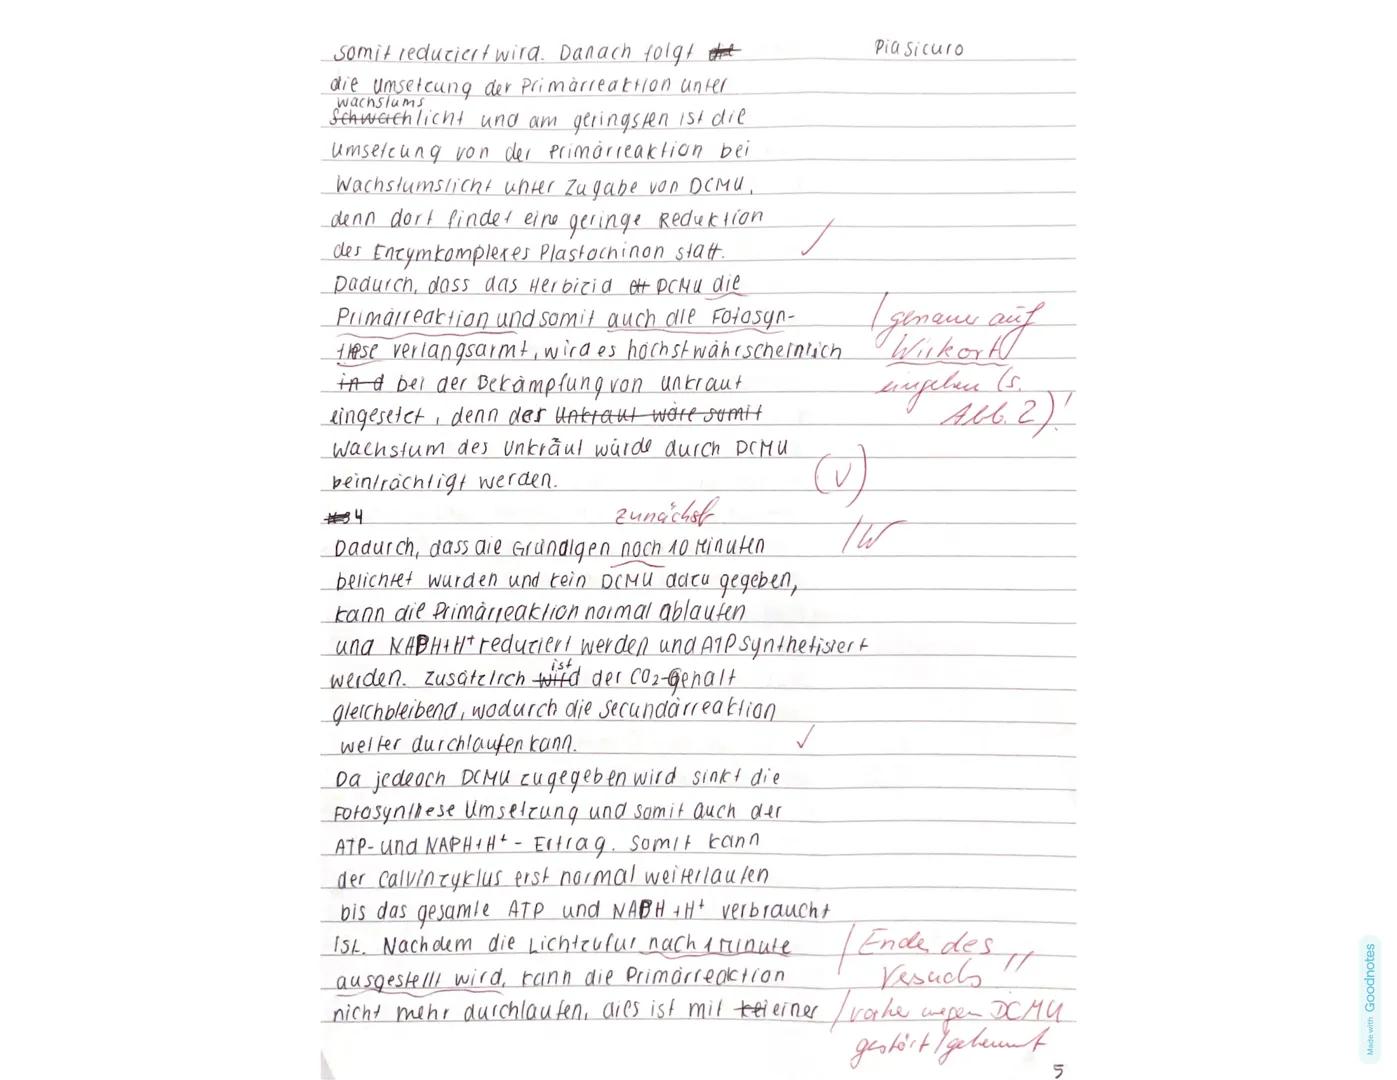 somit reduziert wird. Danach folgt die
Pia Sicuro
die Umsetzung der Primärreaktion unter
wachstums
Schwachlicht und am geringsten ist die
Umsetzung von der Primärreaktion bei
Wachstumslicht unter Zugabe von DCMU,
denn dort findet eine geringe Reduktion
des Enzymkomplexes Plastochinon statt. ✓
Dadurch, dass das Herbizid DCMU die
Primärreaktion und somit auch die Fotosyn-
these verlangsarmt, wird es höchstwahrscheinlich
in d bei der Bekämpfung von Unkraut
eingesetzt, denn das Unkraut wäre somit
Wachstum des Unkraut würde durch DCMU
beinträchtigt werden.
/ genauer auf
Wirkort
eingehen (s.
Abb. 2)!
(v)
4
zunächst
Dadurch, dass die Grünalgen nach 10 Minuten
/W
belichtet wurden und kein DCMU dazu gegeben,
kann die Primärreaktion normal ablaufen
und NADPH+H+ reduziert werden und ATP synthetisiert
ist
werden. Zusätzlich wird der CO2-Gehalt
gleichbleibend, wodurch die Secundärreaktion
weiter durchlaufen kann. ✓
Da jedeoch DCMU zugegeben wird sinkt die
Fotosynthese Umsetzung und somit auch der
ATP- und NAPH+H+ - Ertrag. Somit kann
der Calvinzyklus erst normal weiterlaufen
bis das gesamte ATP und NADH+H+ verbraucht
ist. Nachdem die Lichtzufur nach 1 Minute
ausgestellt wird, kann die Primärreaktion
nicht mehr durchlaufen, dies ist mit kei einer
/ Ende des
Versuchs !!
/ vorher wegen DCMU
gestört / gehemmt
5
Made with Goodnotes